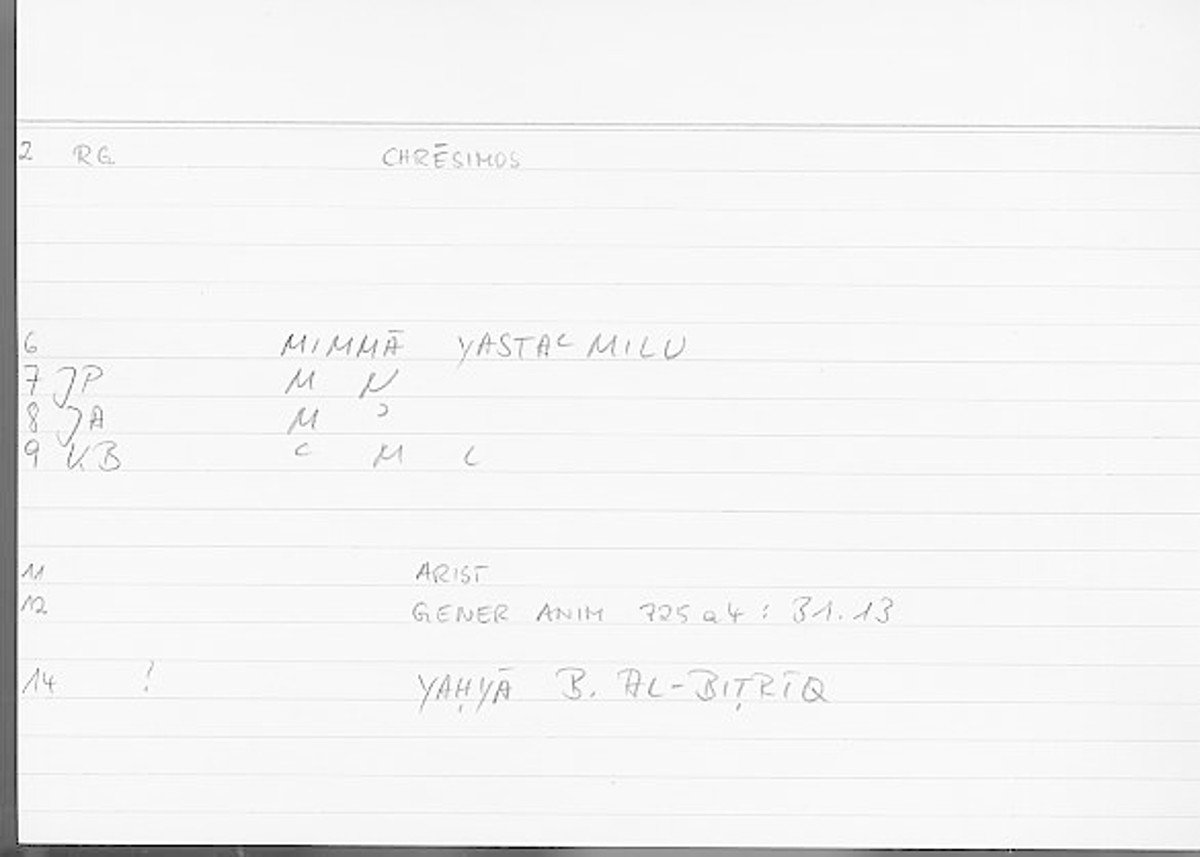 2 RG CHRĒSIMOS
6 MIMMĀ YASTAᶜMILU
7 JP M N
8 JA M ʾ
9 KB ᶜ M L
11 ARIST
12 GENER ANIM 725 a 4 : 31.13
14 ! YAḤYĀ B. AL-BIṬRĪQ